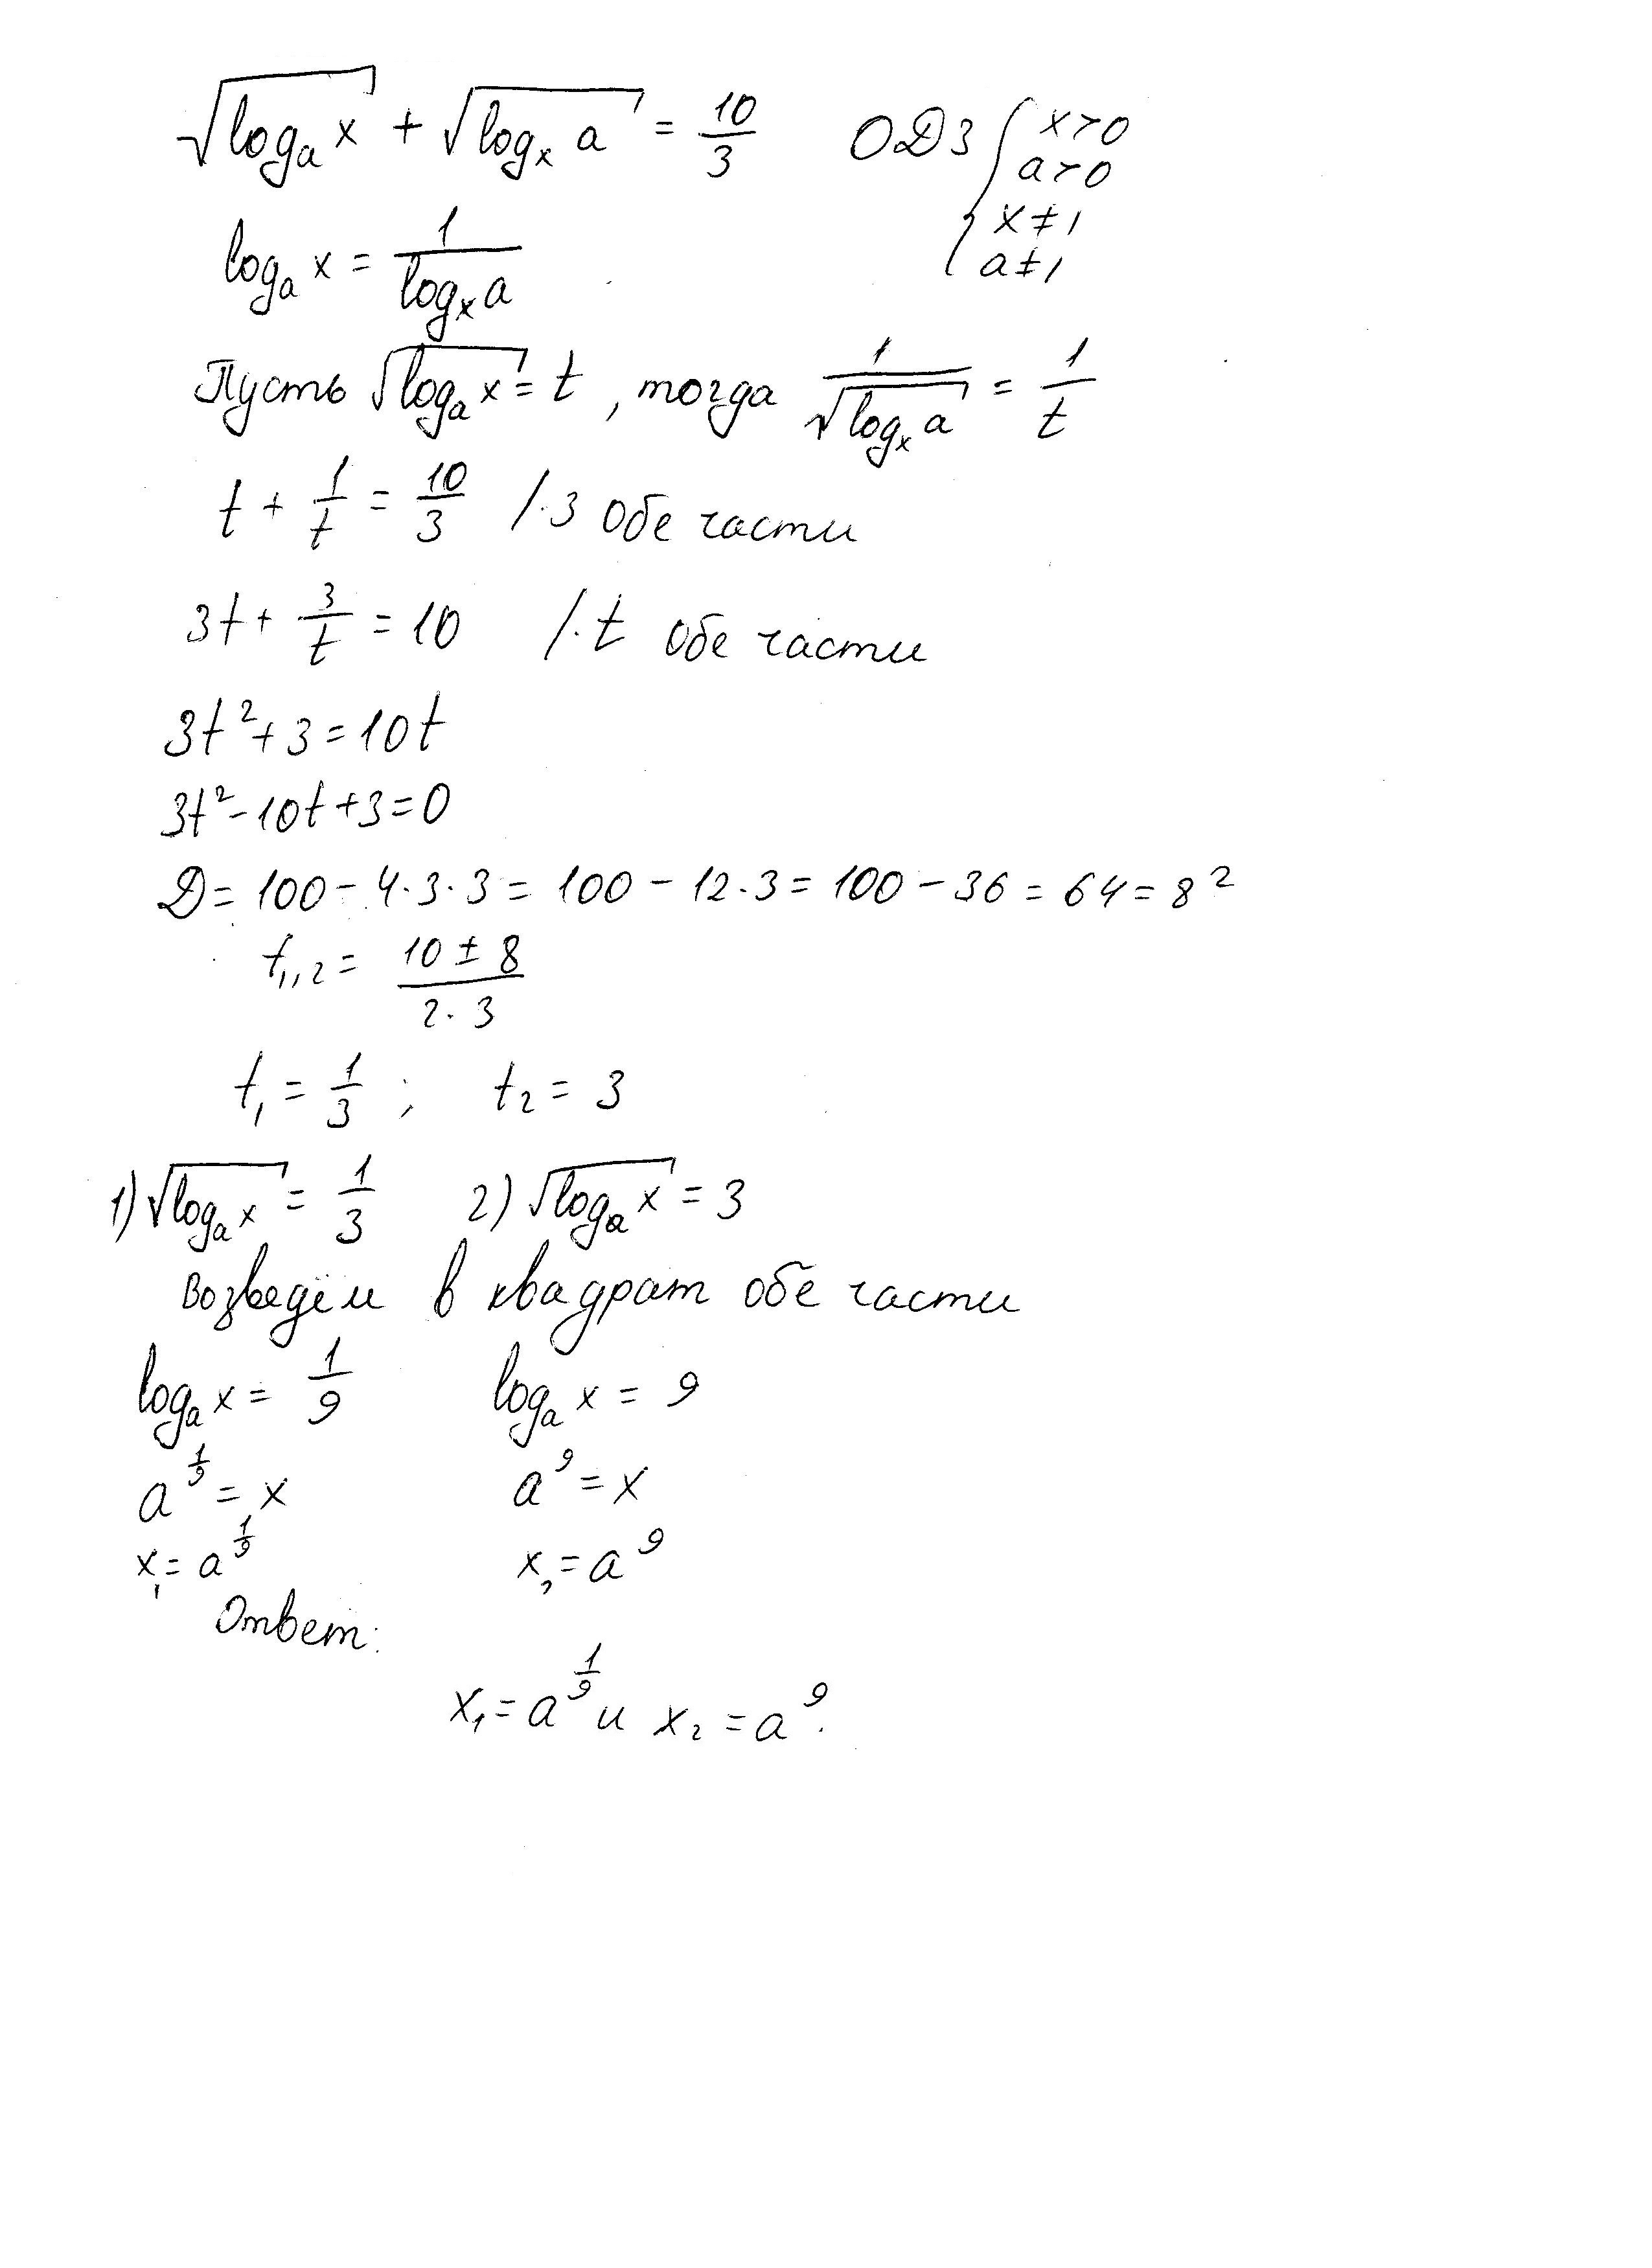 √(logₐ x) + √(logₓ a) = 10/3   ОДЗ { x>0
a>0
x≠1
a≠1
logₐ x = 1/(logₓ a)
Пусть √(logₐ x) = t , тогда 1/√(logₓ a) = 1/t
t + 1/t = 10/3 /·3 обе части
3t + 3/t = 10 /·t обе части
3t² + 3 = 10t
3t² - 10t + 3 = 0
Д = 100 - 4·3·3 = 100 - 12·3 = 100 - 36 = 64 = 8²
t₁,₂ = (10 ± 8)/(2·3)
t₁ = 1/3 ; t₂ = 3
1) √(logₐ x) = 1/3   2) √(logₐ x) = 3
Возведём в квадрат обе части
logₐ x = 1/9   logₐ x = 9
a^(1/9) = x   a⁹ = x
x₁ = a^(1/9)   x₂ = a⁹
Ответ:
x₁ = a^(1/9) и x₂ = a⁹.